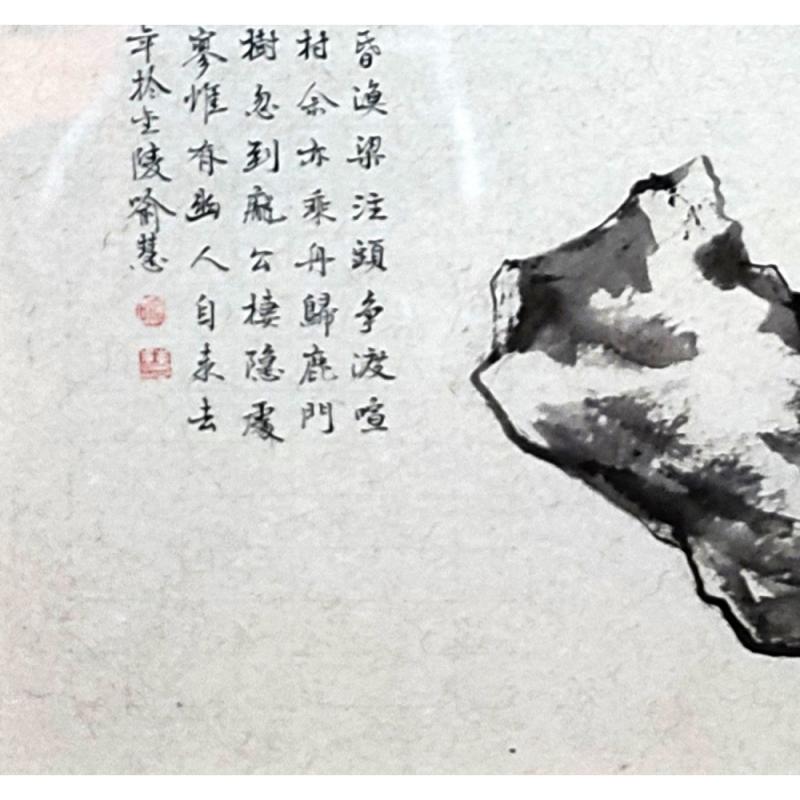 昏漁梁注頭争渡喧
村余亦乘舟歸鹿門
樹忽到龐公棲隐處
寥惟有幽人自来去
年於金陵喻慧